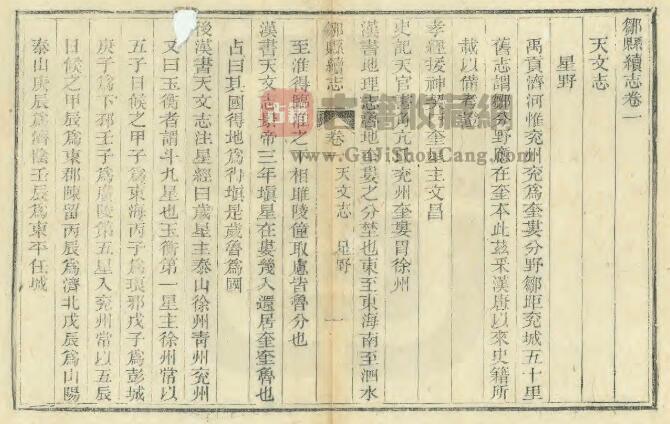 鄒縣續志卷一
天文志
星野
禹貢濟河惟兗州兗爲奎婁分野鄒距兗城五十里
舊志謂鄒分野應在奎本此茲采漢唐以來史籍所
載以備考
孝經援神契曰奎主文昌
史記天官書角亢氐兗州奎婁胃徐州
漢書地理志魯地奎婁之分埜也東至東海南至泗水
鄒縣續志 卷一 天文志 星野 一
至淮得臨淮之下相睢陵僮取慮皆魯分也
漢書天文志景帝三年塡星在婁幾入還居奎奎魯也
占曰其國得地爲得塡是歲魯爲國
後漢書天文志注星經曰歲星主泰山徐州青州兗州
又曰玉衡者謂斗九星也玉衡第一星主徐州常以
五子日候之甲子爲東海丙子爲琅邪戊子爲彭城
庚子爲下邳壬子爲廣陵第五星入兗州常以五辰
日候之甲辰爲東郡陳留丙辰爲濟北戊辰爲山陽
泰山庚辰爲濟陰壬辰爲東平任城
古籍收藏網
www.GuJiShouCang.com